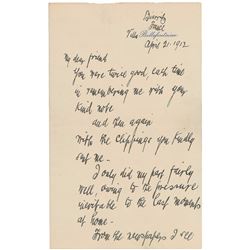 Biarritz
France
Villa Bellefontaine
April 21. 1912
My dear friend
You were twice good, each time
in remembering me with your
kind note
and then again
with the clippings you kindly
cut me —
I only did my part fairly
well, owing to the pressure
inevitable to the last moments
at home —
From the newspapers I see